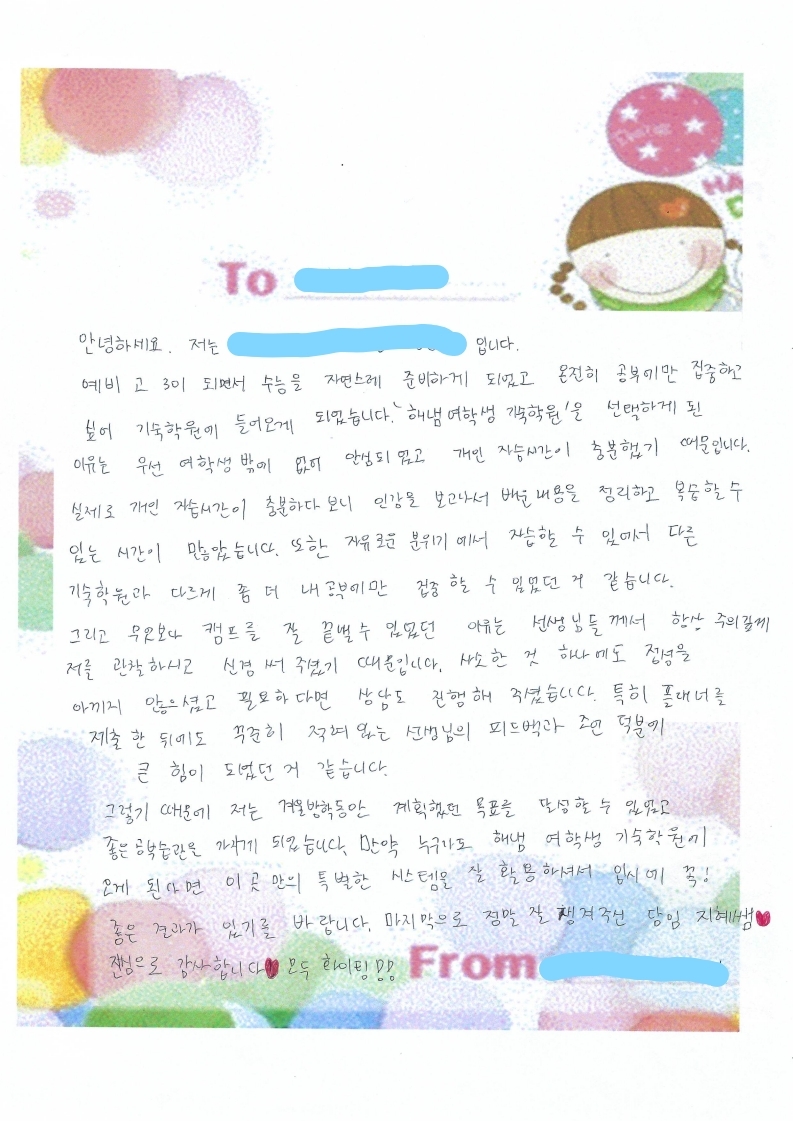 To
안녕하세요. 저는 입니다.
예비 고 3이 되면서 수능을 자연스레 준비하게 되었고 온전히 공부에만 집중하고
싶어 기숙학원에 들어오게 되었습니다. '해냄여학생 기숙학원'을 선택하게 된
이유는 우선 여학생밖에 없어 안심되었고 개인 자습시간이 충분했기 때문입니다.
실제로 개인 자습시간이 충분하다 보니 인강을 보고나서 배운내용을 정리하고 복습할 수
있는 시간이 많았습니다. 또한 자유로운 분위기에서 자습할 수 있어서 다른
기숙학원과 다르게 좀 더 내공부에만 집중할 수 있었던 거 같습니다.
그리고 무엇보다 캠프를 잘 끝낼수 있었던 이유는 선생님들께서 항상 주의깊게
저를 관찰하시고 신경써 주셨기 때문입니다. 사소한 것 하나에도 정성을
아끼지 않으셨고 필요하다면 상담도 진행해 주셨습니다. 특히 플래너를
제출한 뒤에도 꾸준히 적혀있는 선생님의 피드백과 조언 덕분에
큰 힘이 되었던 거 같습니다.
그렇기 때문에 저는 겨울방학동안 계획했던 목표를 달성할 수 있었고
좋은공부습관을 가지게 되었습니다. 만약 누구라도 해냄 여학생 기숙학원에
오게 된다면 이곳만의 특별한 시스템을 잘 활용하셔서 입시에 꼭!
좋은 결과가 있기를 바랍니다. 마지막으로 정말 잘 챙겨주신 담임 지혜쌤♥
진심으로 감사합니다♥ 모두 화이팅!! From